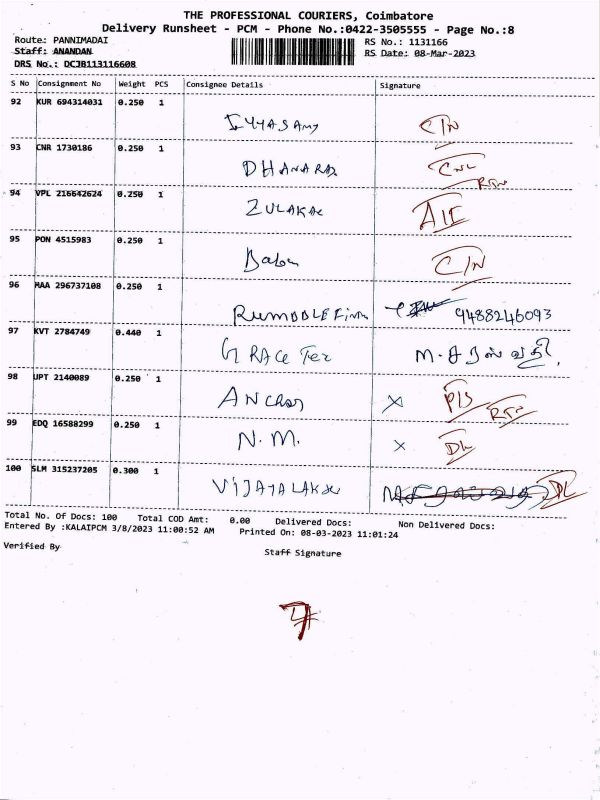 THE PROFESSIONAL COURIERS, Coimbatore
Delivery Runsheet - PCM - Phone No.:0422-3505555 - Page No.:8
Route: PANNIMADAI RS No.: 1131166
Staff: ANANDAN RS Date: 08-Mar-2023
DRS No.: DCJB113116608
S No Consignment No Weight PCS Consignee Details Signature
92 KUR 694314031 0.250 1
IYYASAMY C/N
93 CNR 1730186 0.250 1
DHANARAJ CNL RTN
94 VPL 216642624 0.250 1
ZULAKAL
95 PON 4515983 0.250 1
Babu C/N
96 MAA 296737108 0.250 1
9488246093
97 KVT 2784749 0.440 1
GRACE Tex
98 UPT 2140089 0.250 1
ANCHOR X RTN
99 EDQ 16588299 0.250 1
N.M. X DL
100 SLM 315237205 0.300 1
VIJAYALAKSH DL
Total No. Of Docs: 100 Total COD Amt: 0.00 Delivered Docs: Non Delivered Docs:
Entered By :KALAIPCM 3/8/2023 11:00:52 AM Printed On: 08-03-2023 11:01:24
Verified By Staff Signature